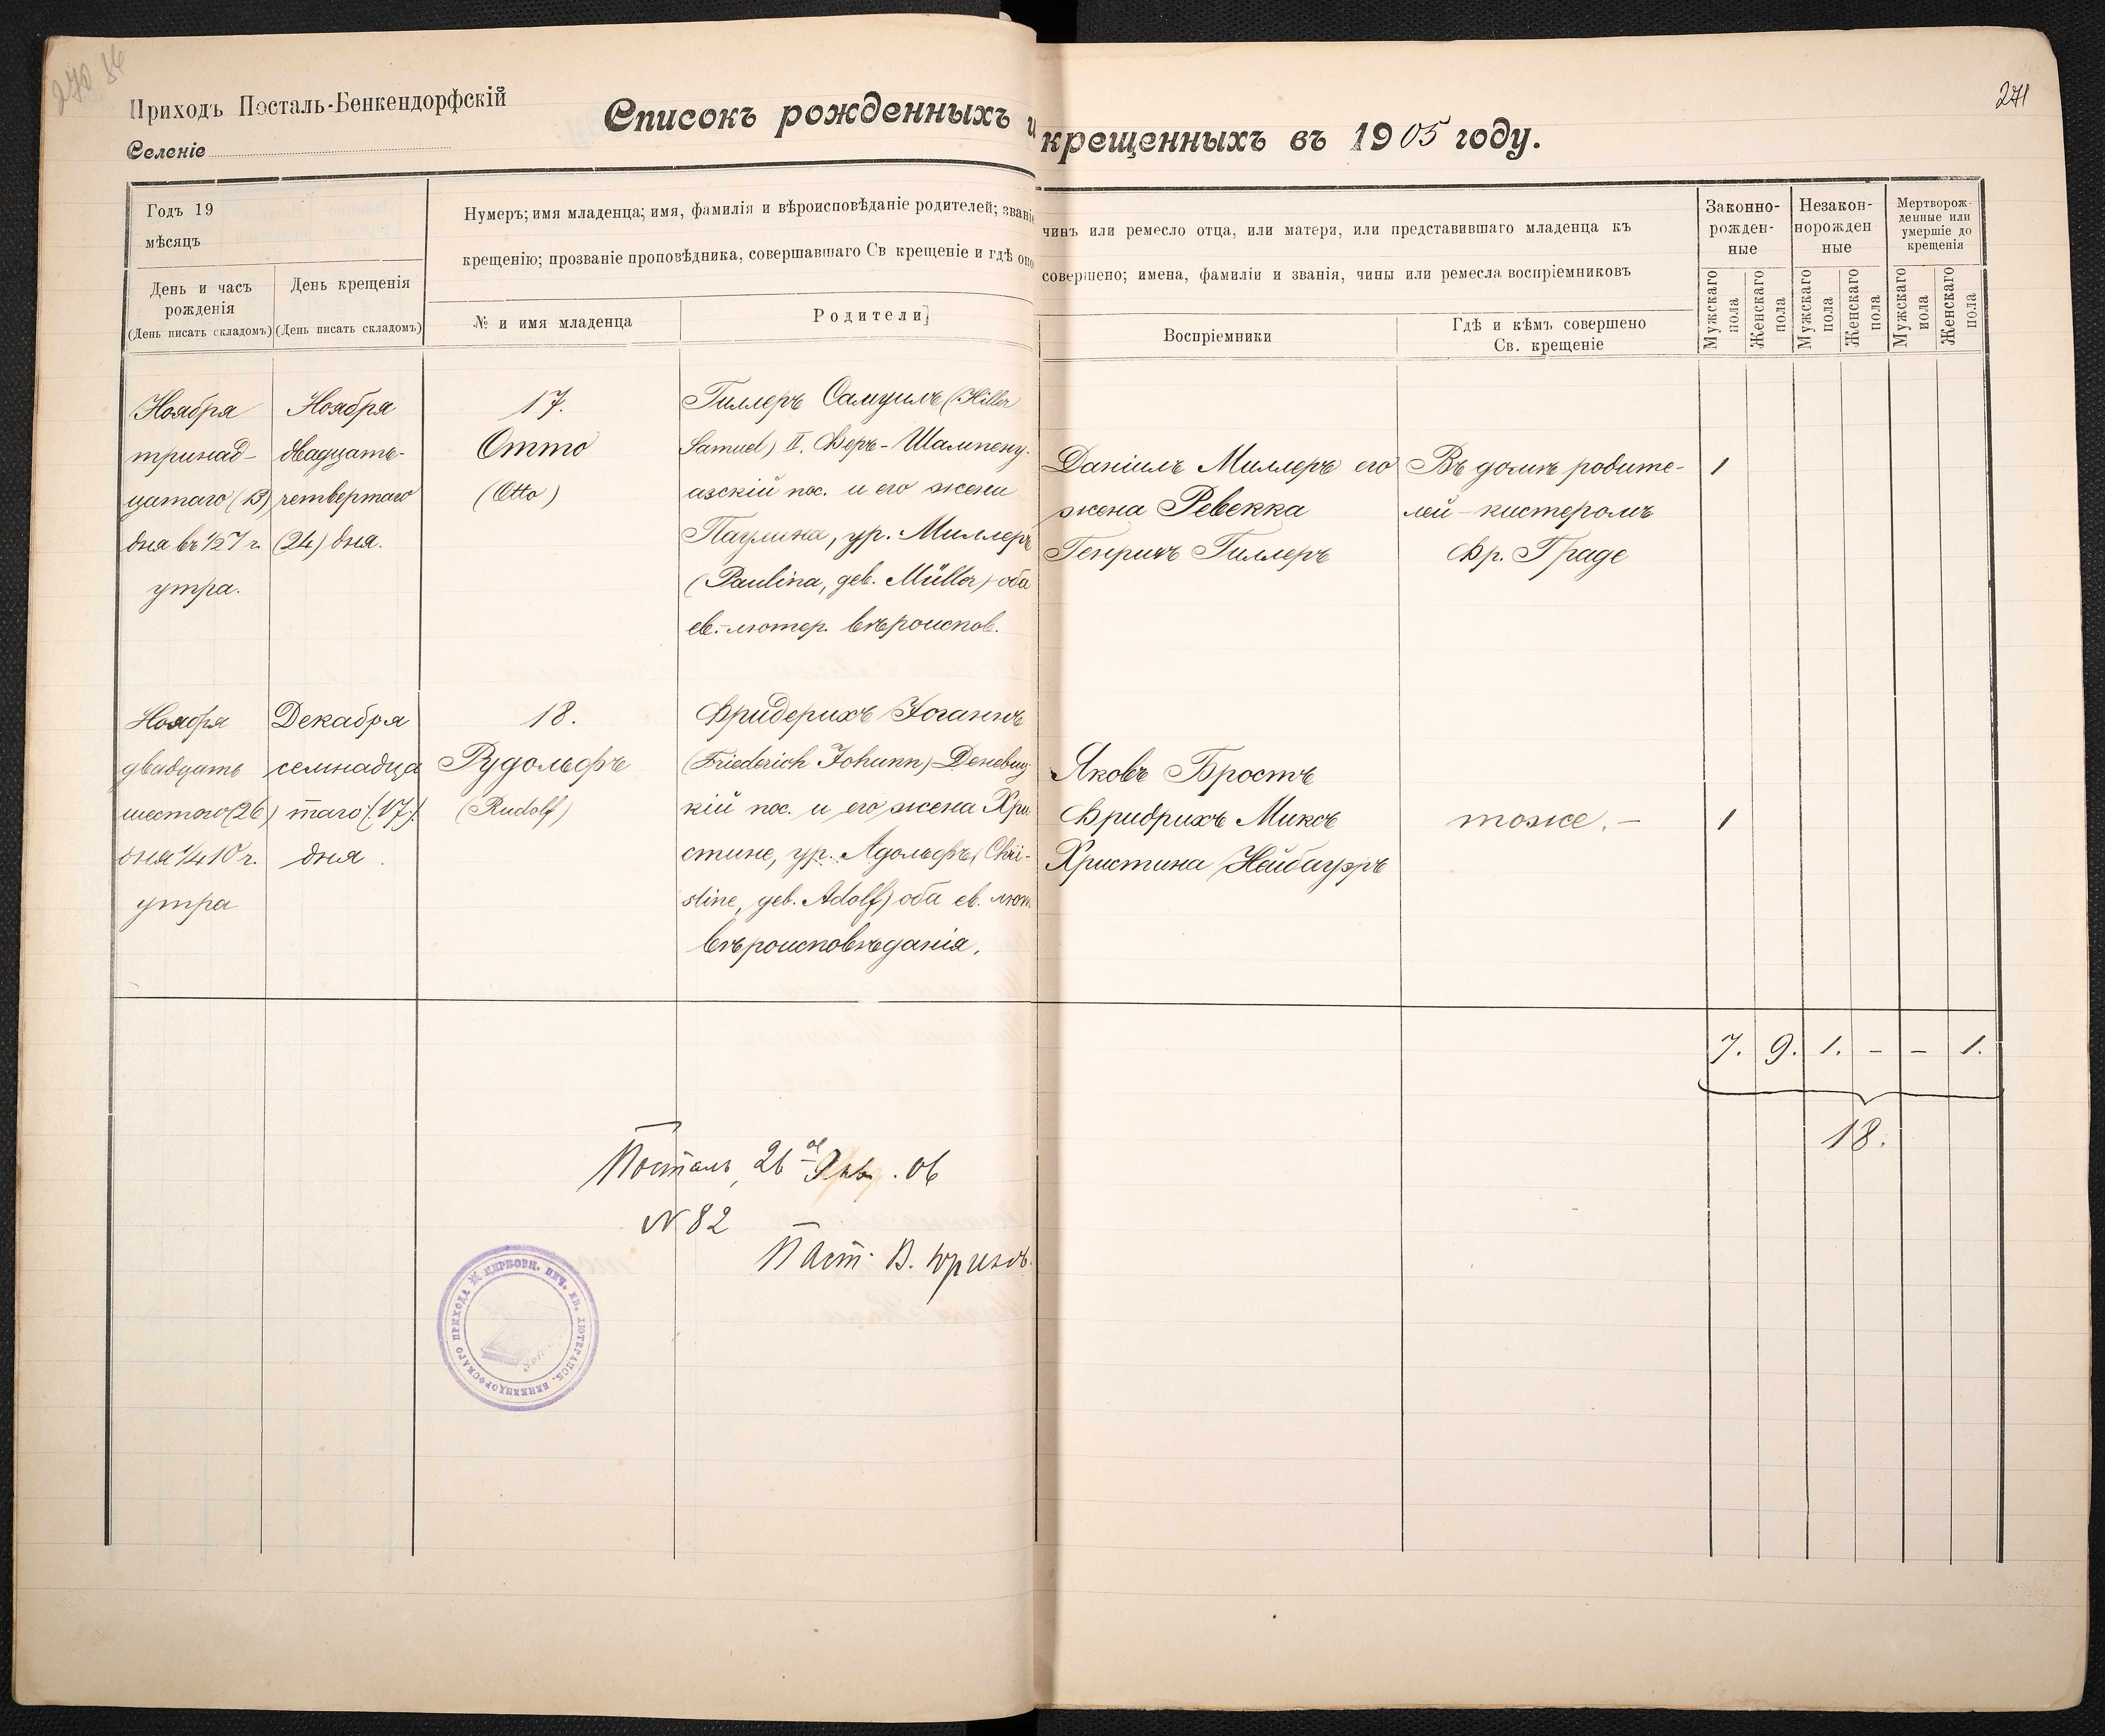 271
Приходъ Посталь-Бенкендорфскій
Селеніе
Списокъ рожденныхъ и крещенныхъ въ 1905 году.
Годъ 19
мѣсяцъ
День и часъ
рожденія
(День писать складомъ)
День крещенія
(День писать складомъ)
Нумеръ; имя младенца; имя, фамилія и вѣроисповѣданіе родителей; званіе чинъ или ремесло отца, или матери, или представившаго младенца къ
крещенію; прозваніе проповѣдника, совершавшаго Св крещеніе и гдѣ оно совершено; имена, фамиліи и званія, чины или ремесла воспріемниковъ
№ и имя младенца
Родители
Воспріемники
Гдѣ и кѣмъ совершено
Св. крещеніе
Законно-
рожден-
ные
Незакон-
норожден
ные
Мертворож-
денные или
умершіе до
крещенія
Мужскаго
пола
Женскаго
пола
Мужскаго
пола
Женскаго
пола
Мужскаго
пола
Женскаго
пола
Ноября
тринад-
цатаго (13)
дня въ 1/2 7 ч.
утра.
Ноября
двадцать-
четвертаго
(24) дня.
17.
Отто
(Otto)
Гиллеръ Самуилъ (Hiller
Samuel) II. Феръ-Шампену-
азскій пос. и его жена
Паулина, ур. Миллеръ
(Paulina, geb. Müller) оба
ев.-лютер. вѣроиспов.
Даніилъ Миллеръ его
жена Ревекка
Генрихъ Гиллеръ
Въ домѣ родите-
лей - кистеромъ
Фр. Граде
1
Ноября
двадцать
шестого (26)
дня 1/4 10 ч.
утра
Декабря
семнадца
таго (:17:)
дня.
18.
Рудольфъ
(Rudolf)
Фридерихъ Іоганнъ
(Friederich Johann) Деневиц
кій пос. и его жена Хри
стине, ур. Адольфъ, (Chri-
stine, geb. Adolf) оба ев. лют.
вѣроисповѣданія.
Яковъ Бростъ
Фридрихъ Миксъ
Христина Нейбауэръ
тоже. -
1
7. 9. 1. - - 1.
18.
Посталь, 26 Янв. 06
N 82
Паст. В.
ЦЕРКОВН. ПЕЧ. ЕВ. ЛЮТЕРАНСК. БЕНКЕНДОРФСКАГО ПРИХОДА